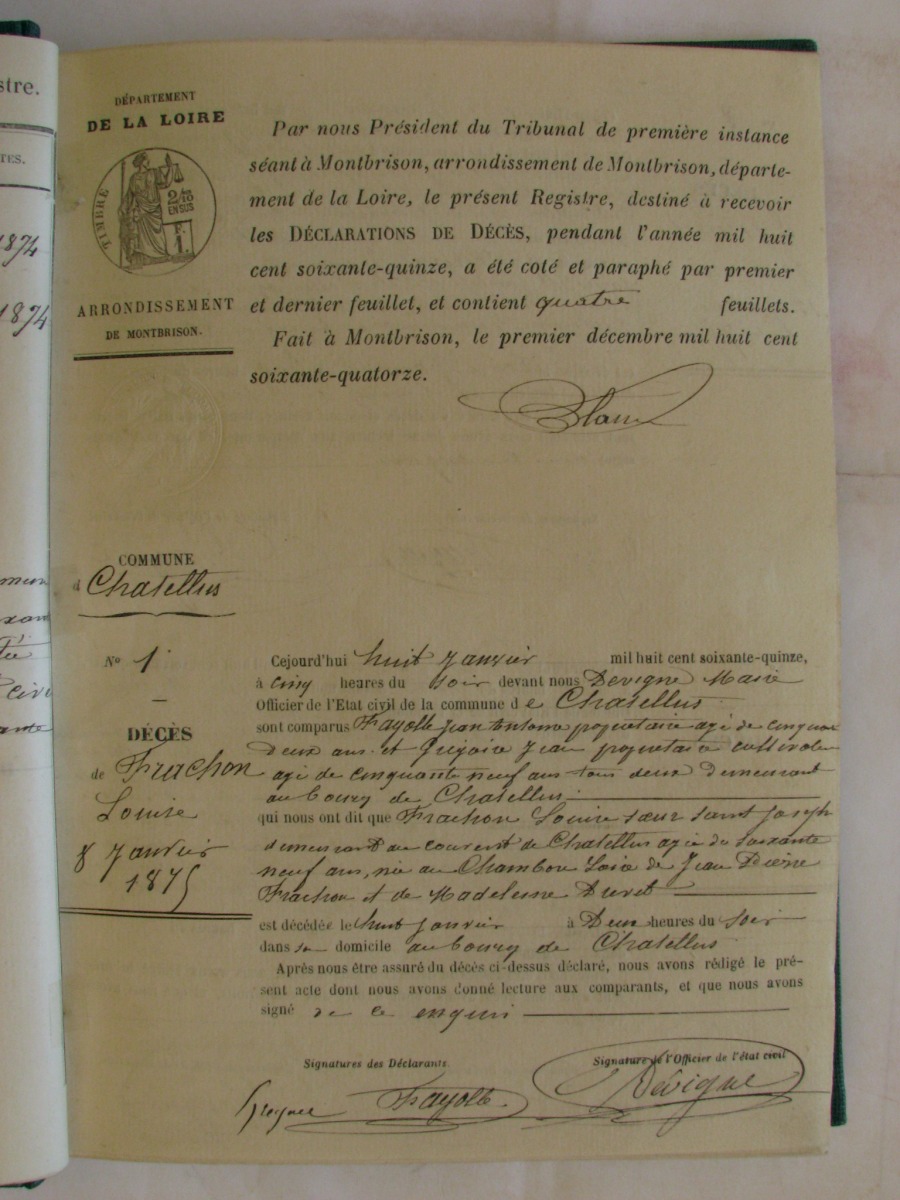 stre.
TES.
1874
1874
DÉPARTEMENT
DE LA LOIRE
TIMBRE
2/10
EN SUS
F.
1
ARRONDISSEMENT
DE MONTBRISON.
Par nous Président du Tribunal de première instance
séant à Montbrison, arrondissement de Montbrison, départe-
ment de la Loire, le présent Registre, destiné à recevoir
les DÉCLARATIONS DE DÉCÈS, pendant l'année mil huit
cent soixante-quinze, a été coté et paraphé par premier
et dernier feuillet, et contient quatre feuillets.
Fait à Montbrison, le premier décembre mil huit cent
soixante-quatorze.
COMMUNE
d Chatellus
N° 1
DÉCÈS
de Frachon
Louise
8 Janvier
1875
Cejourd'hui huit Janvier mil huit cent soixante-quinze,
à cinq heures du soir devant nous Devigne Marie
Officier de l'Etat civil de la commune de Chatellus
sont comparus Fayolle Jean Antoine propriétaire agé de cinquante
deux ans et Grégoire Jean propriétaire cultivateur
agé de cinquante neuf ans tous deux demeurant
au bourg de Chatellus
qui nous ont dit que Frachon Louise sœur saint Joseph
demeurant au couvent de Chatellus agée de soixante
neuf ans, née au Chambon Loire de Jean Pierre
Frachon et de Madeleine
est décédée le huit Janvier à Deux heures du soir
dans son domicile au bourg de Chatellus
Après nous être assuré du décès ci-dessus déclaré, nous avons rédigé le pré-
sent acte dont nous avons donné lecture aux comparants, et que nous avons
signé de ce enquri
Signatures des Déclarants.
Signature de l'Officier de l'état civil
Fayolle
Dévigne